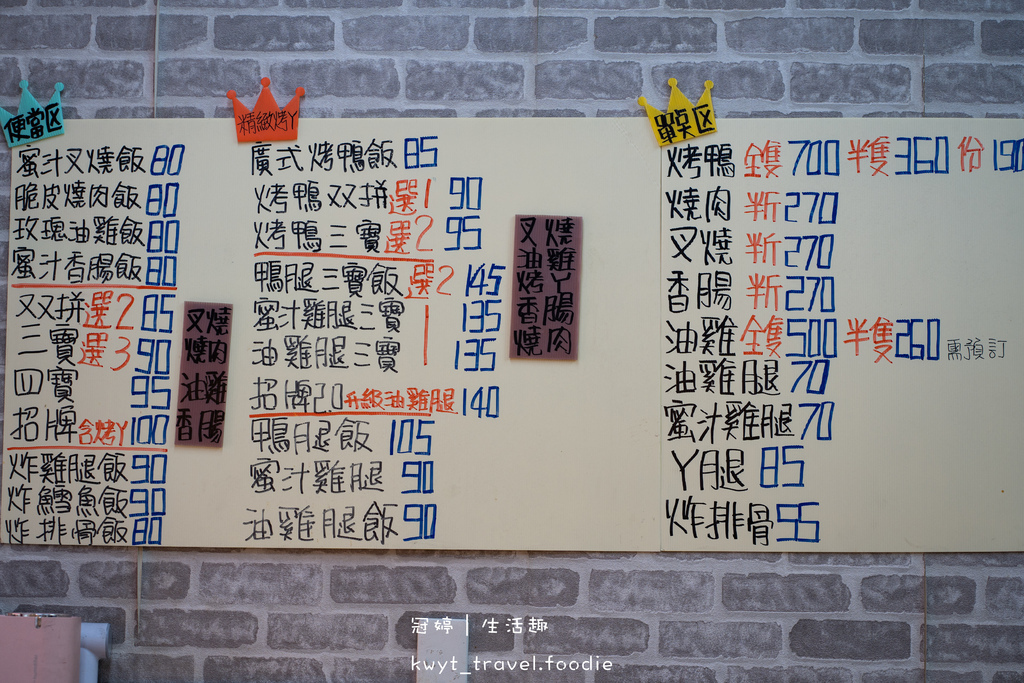 便當区
蜜汁叉燒飯 80
脆皮燒肉飯 80
玫瑰油雞飯 80
蜜汁香腸飯 80
双拼選2 85
三寶選3 90
四寶 95
招牌含烤丫 100
炸雞腿飯 90
炸鱈魚飯 90
炸排骨飯 80
叉燒
燒肉
油雞
香腸
精緻烤丫
廣式烤鴨飯 85
烤鴨双拼選1 90
烤鴨三寶選2 95
鴨腿三寶飯選2 145
蜜汁雞腿三寶 1 135
油雞腿三寶 135
招牌2.0升級油雞腿 140
鴨腿飯 105
蜜汁雞腿 90
油雞腿飯 90
叉燒
油雞
烤丫
香腸
燒肉
單買区
烤鴨 全隻700 半隻360 份190
燒肉 半斤270
叉燒 半斤270
香腸 半斤270
油雞 全隻500 半隻260 需預訂
油雞腿 70
蜜汁雞腿 70
丫腿 85
炸排骨 55
冠婷｜生活趣
kwyt_travel.foodie